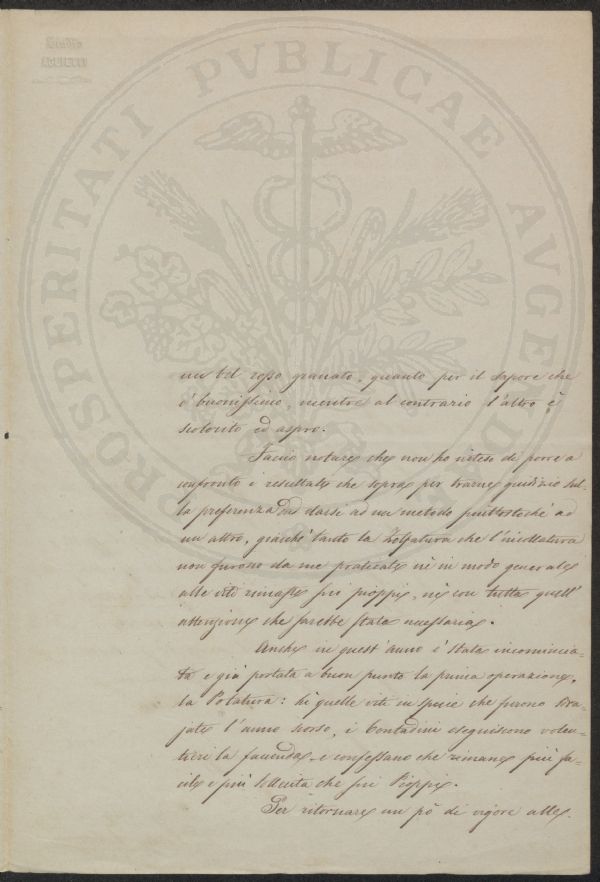 un bel rosso granato, quanto per il sapore che
è buonissimo, mentre al contrario l'altro è
scolorito ed aspro.
Faccio notare che non ho inteso di porre a
confronto i resultati che sopra per trarne giudizio sul-
la preferenza da darsi ad un metodo piuttostochè ad
un altro, giacchè tanto la Zolfatura che l'incollatura
non furono da me praticate nè in modo generale
alle viti rimaste sui pioppi, nè con tutta quell'
attenzione che sarebbe stata necessaria.
Anche in quest'anno è stata incomincia-
ta e già portata a buon punto la prima operazione,
la Potatura: di quelle viti in specie che furono
l'anno scorso, i Contadini eseguiscono volen-
tieri la faccenda, e confessano che rimane più fa-
cile e più sollecita che sui Pioppi.
Per ritornare un pò di vigore alle
PROSPERITATI PVBLICAE AVGENDAE